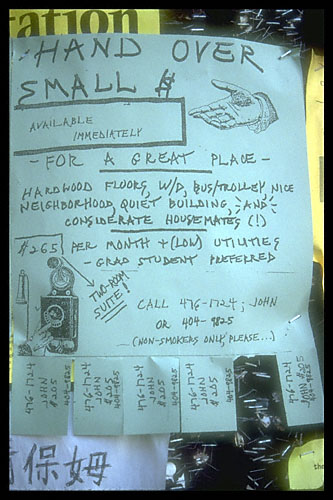 ation
HAND OVER
SMALL $
AVAILABLE
IMMEDIATELY
- FOR A GREAT PLACE -
HARDWOOD FLOORS, W/D, BUS/TROLLEY, NICE
NEIGHBORHOOD, QUIET BUILDING, -AND-
CONSIDERATE HOUSEMATES (!)
$265 PER MONTH + (LOW) UTILITIES
- GRAD STUDENT PREFERRED
TWO-ROOM
SUITE!
CALL 476-1724, JOHN
OR 404-9825
(NON-SMOKERS ONLY, PLEASE...)
476-1724
JOHN
$205
404-9825
476-1724
JOHN
$205
404-9825
476-1724
JOHN
$205
404-9825
476-1724
JOHN
$205
404-9825
476-1724
JOHN $205
404-9825
保姆
the